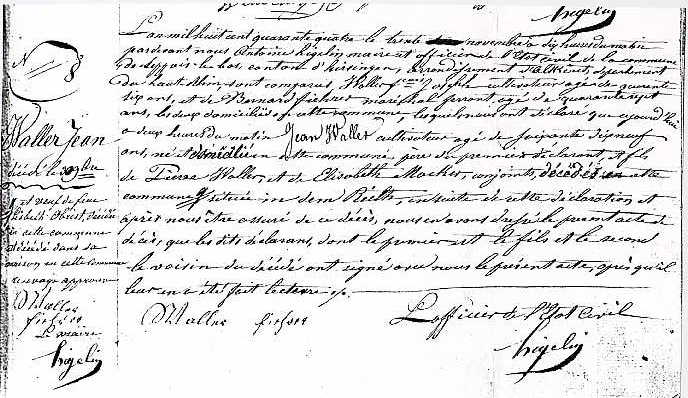 higelin
N° 8
Waller Jean
décédé le 30 9bre
et veuf de feue
Elisabeth Hurst, décédée
en cette commune
et décédé dans sa
maison en cette commune
renvoye approuvé
N Waller
fischer
Le maire
higelin
L'an mil huit cent quarante quatre le trente novembre à dix heures du matin
pardevant nous Antoine higelin maire et officier de l'Etat civil de la commune
de Seppois-le-bas, canton d'hirsingen, arrondissement d'altkirch, département
du haut Rhin, sont comparus Waller cultivateur agé de quarante
six ans, et de Bernard fischer maréchal ferrant, agé de quarante sept
ans, les deux domiciliés en cette commune, lesquels nous ont déclaré que aujourd'hui
à deux heures du matin Jean Waller cultivateur agé de soixante dix neuf
ans, né et domicilié en cette commune père du premier déclarant, et fils
de Pierre Waller, et de Elisabeth Macker, conjoints, décédés en cette
commune située in dem Reelth, ensuite de cette déclaration et
après nous être assuré de ce décès, nous en avons dressé le présent acte de
décès, que les dits déclarans, dont le premier est le fils et le second
le voisin du décédé ont signé avec nous le présent acte, après qu'il
leur en a été fait lecture
N Waller fischer L'officier de l'Etat Civil
higelin